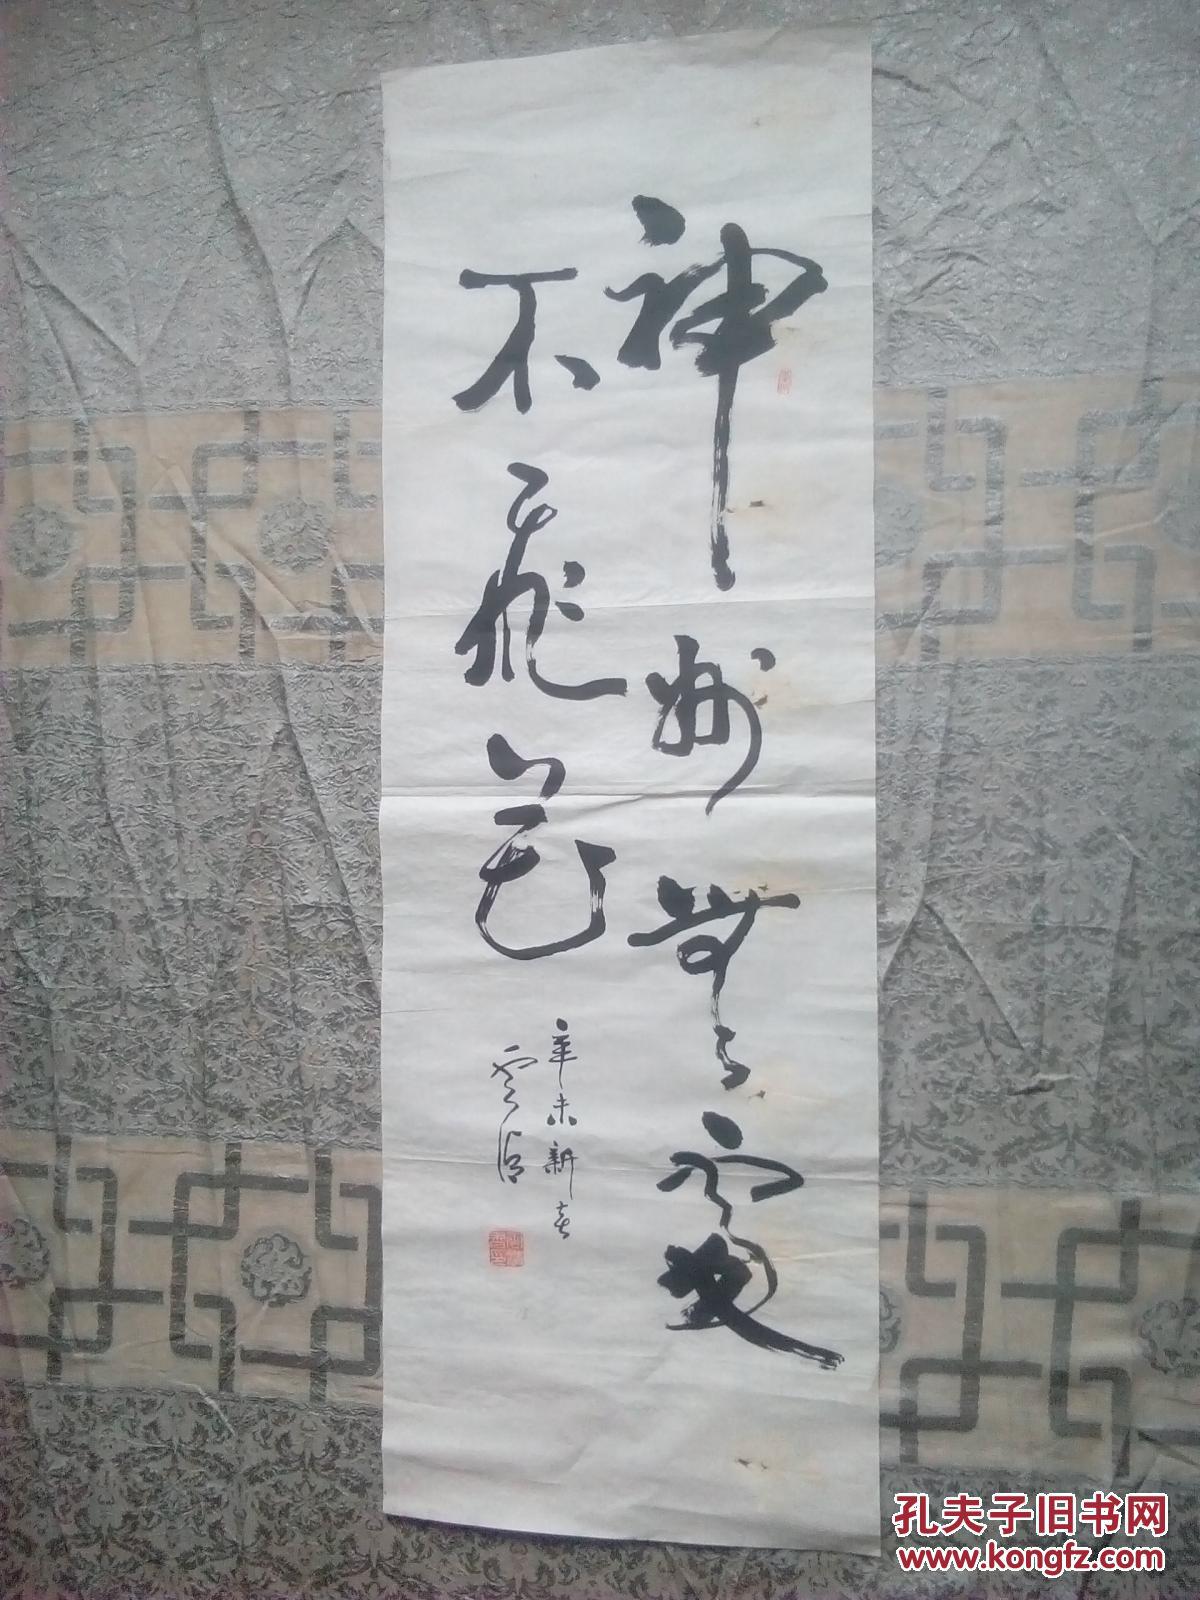 神州無處
不飛花
辛未新春
孔夫子旧书网
www.kongfz.com